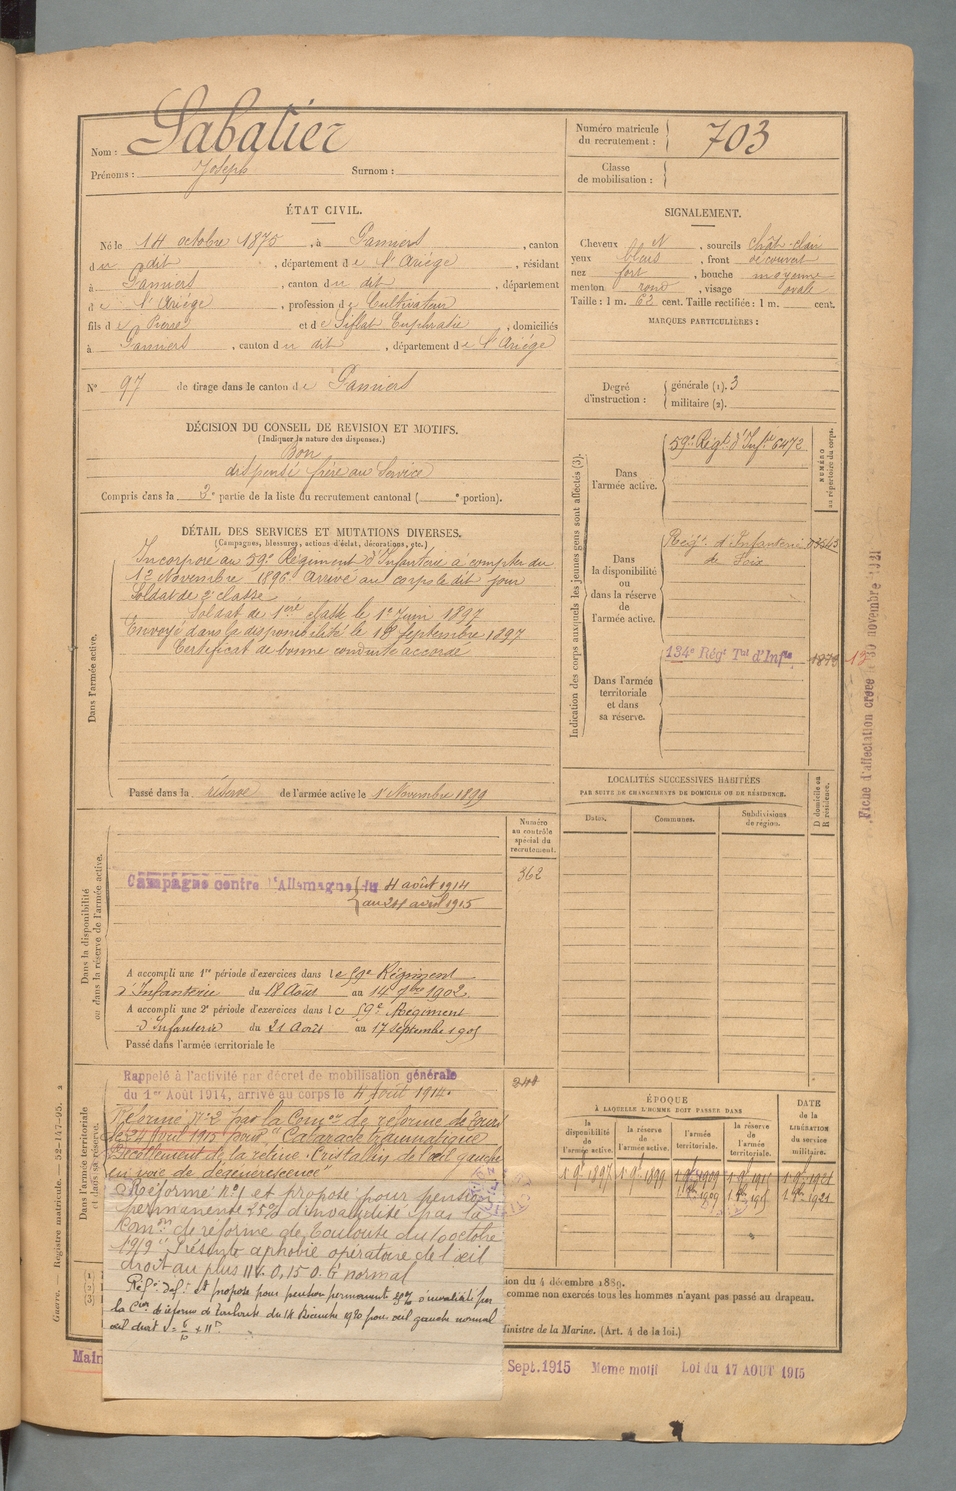 Nom : Sabatier
Prénoms : Joseph Surnom :
Numéro matricule
du recrutement : 703
Classe
de mobilisation :
ÉTAT CIVIL.
Né le 14 octobre 1875, à Pamiers, canton
du dit, département de l'Ariége, résidant
à Pamiers, canton du dit, département
de l'Ariége, profession de Cultivateur
fils de Pierre et de Siflat Euphrasie, domiciliés
à Pamiers, canton du dit, département de l'Ariége
N° 97 de tirage dans le canton de Pamiers
SIGNALEMENT.
Cheveux N, sourcils chât-clair
yeux bleus, front découvert
nez fort, bouche moyenne
menton rond, visage ovale
Taille : 1 m. 62 cent. Taille rectifiée : 1 m. cent.
MARQUES PARTICULIÈRES :
Degré
d'instruction :
générale (1). 3
militaire (2).
DÉCISION DU CONSEIL DE REVISION ET MOTIFS.
(Indiquer la nature des dispenses.)
Bon
dispensé frère au Service
Compris dans la 3e partie de la liste du recrutement cantonal ( e portion).
DÉTAIL DES SERVICES ET MUTATIONS DIVERSES.
(Campagnes, blessures, actions d'éclat, décorations, etc.)
Dans l'armée active.
Incorporé au 59e Régiment d'Infanterie à compter du
12 Novembre 1896. Arrivé au corps le dit jour
Soldat de 2e classe
Soldat de 1ère classe le 1er Juin 1897
Envoyé dans la disponibilité le 18 Septembre 1897
Certificat de bonne conduite accordé
Passé dans la réserve de l'armée active le 1er Novembre 1899
Indication des corps auxquels les jeunes gens sont affectés (3).
NUMÉRO
au répertoire du corps.
Dans
l'armée active.
59e Régt d'Infie 6472
Dans
la disponibilité
ou
dans la réserve
de
l'armée active.
Régt d'Infanterie 03545
de Foix
Dans l'armée
territoriale
et dans
sa réserve.
134e Régt Tal d'Infie
Fiche d'affectation créée le 30 novembre 1921
LOCALITÉS SUCCESSIVES HABITÉES
PAR SUITE DE CHANGEMENTS DE DOMICILE OU DE RÉSIDENCE.
Dates. Communes. Subdivisions
de région.
D domicile ou
R résidence.
Dans la disponibilité
ou dans la réserve de l'armée active.
Numéro
au contrôle
spécial du
recrutement.
362
Campagne contre l'Allemagne du 4 août 1914
au 24 avril 1915
A accompli une 1re période d'exercices dans le 59e Régiment
d'Infanterie du 18 Août au 14 7bre 1902
A accompli une 2e période d'exercices dans le 59e Régiment
d'Infanterie du 21 Août au 17 Septembre 1905
Passé dans l'armée territoriale le
Dans l'armée territoriale
et dans sa réserve.
Rappelé à l'activité par décret de mobilisation générale
du 1er Août 1914, arrivé au corps le 4 Août 1914.
241
Réformé N°2 par la Comon de réforme de
le 24 Avril 1915 pour "Cataracte traumatique
Décollement de la rétine. Cristallin de l'œil gauche
en voie de dégénérescence"
Réforme n°1 et proposé pour pension
permanente 25% d'invalidité par la
Comon de réforme de Toulouse du 10 octobre
1919
droit
normal
Réf. def. et proposé pour pension permanente d'invalidité par
la Con de réforme de Toulouse du 14 Décembre 1920 pour œil gauche normal
œil droit
ÉPOQUE
À LAQUELLE L'HOMME DOIT PASSER DANS
la
disponibilité
de
l'armée active.
la réserve
de
l'armée active.
l'armée
territoriale.
la réserve
de
l'armée
territoriale.
DATE
de la
LIBÉRATION
du service
militaire.
1 9bre 1897 1 9bre 1899 1 9bre 1909 1 9bre 1915 1 9bre 1921
1909 1915 1921
(1)
(2)
(3)
ion du 4 décembre 1889.
comme non exercés tous les hommes n'ayant pas passé au drapeau.
Ministre de la Marine. (Art. 4 de la loi.)
Main
Sept. 1915 Meme motif Loi du 17 AOUT 1915
Guerre. — Registre matricule. — 52-147-95. 2